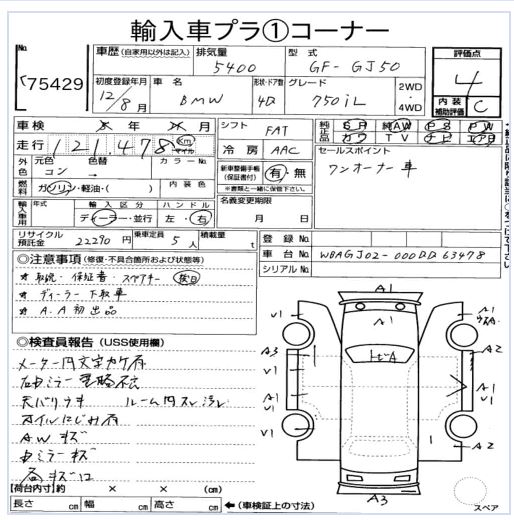 輸入車プラ①コーナー
No.
75429
車歴(自家用以外は記入)
排気量
5400
型式
GF-GJ50
評価点
4
内装補助評価
C
初度登録年月
12/8月
車名
BMW
形状・ドア数
4D
グレード
750iL
2WD・4WD
車検 年 月
走行 121,478 km マイル
シフト FAT
冷房 AAC
純正品 SR カワ
純正品 AW TV PS ナビ PW エアB
外色 元色 コン 色替 カラーNo.
新車整備手帳(保証書付) 有・無
※書類と一緒に保管下さい。
セールスポイント
ワンオーナー車
燃料 ガソリン・軽油・( ) 内装色
名義変更期限
月 日
輸入車用 年式 輸入区分 ハンドル
ディーラー・並行 左・右
リサイクル預託金 22290円 乗車定員 5人 積載量 t
登録No.
車台No. WBAGJ02-000DD63478
シリアルNo.
◎注意事項(修復・不具合箇所および状態等)
★取説・保証書 スペアキー 後日
★ディーラー下取車
★A.A初出品
◎検査員報告(USS使用欄)
メーター内文字カケ有
天バリウキ ルーム内スレ、汚レ
オイルにじみ有
AWキズ
ミラーキズ
【荷台内寸】約 × × (cm)
長さ cm 幅 cm 高さ cm
←(車検証上の寸法)
A1
V1
A1
A1
A3
V1
A1
V1
V1
A2
A1
V1
A2
A3
スペア